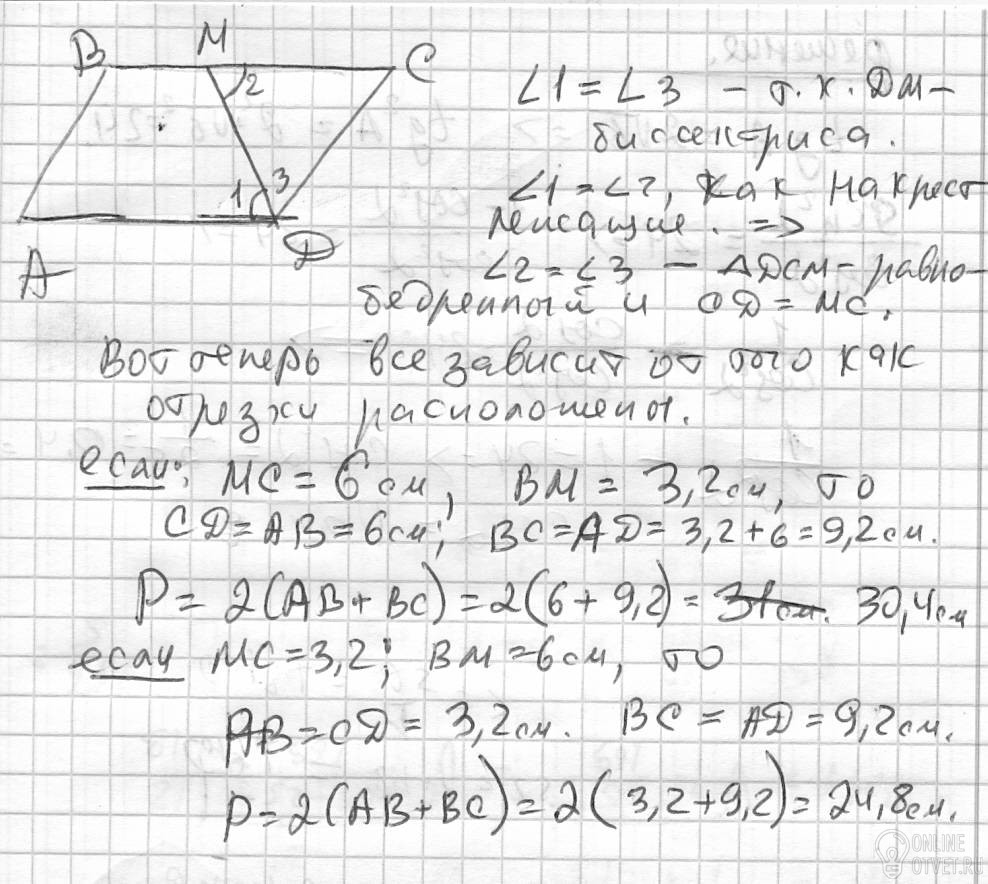 B M C
2
1 3
A D
∠1 = ∠3 – т.к. DM –
биссектриса.
∠1 = ∠2, как накрест
лежащие. =>
∠2 = ∠3 – ΔDCM – равно-
бедренный и CD = MC.
Вот теперь все зависит от того как
отрезки расположены.
если: MC = 6 см, BM = 3,2 см, то
CD = AB = 6 см; BC = AD = 3,2 + 6 = 9,2 см.
P = 2(AB + BC) = 2(6 + 9,2) = 31 см. 30,4 см
если MC = 3,2; BM = 6 см, то
AB = CD = 3,2 см. BC = AD = 9,2 см.
P = 2(AB + BC) = 2(3,2 + 9,2) = 24,8 см.
ONLINE
OTVET.RU